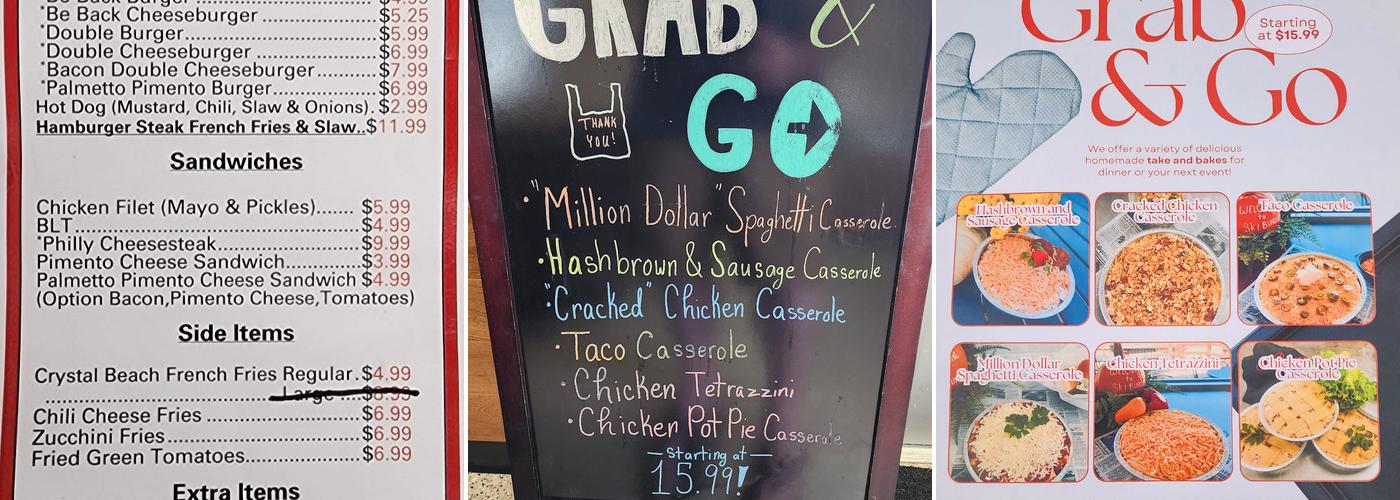 *Be Back Cheeseburger............$5.25
*Double Burger............$5.99
*Double Cheeseburger............$6.99
*Bacon Double Cheeseburger............$7.99
*Palmetto Pimento Burger............$6.99
Hot Dog (Mustard, Chili, Slaw & Onions).$2.99
Hamburger Steak French Fries & Slaw..$11.99
Sandwiches
Chicken Filet (Mayo & Pickles).......$5.99
BLT............$4.99
*Philly Cheesesteak............$9.99
Pimento Cheese Sandwich............$3.99
Palmetto Pimento Cheese Sandwich $4.99
(Option Bacon,Pimento Cheese,Tomatoes)
Side Items
Crystal Beach French Fries Regular.$4.99
Large
Chili Cheese Fries............$6.99
Zucchini Fries............$6.99
Fried Green Tomatoes............$6.99
Extra Items
GRAB &
THANK
YOU!
GO
• "Million Dollar" Spaghetti Casserole.
• Hashbrown & Sausage Casserole
• "Cracked" Chicken Casserole
• Taco Casserole
• Chicken Tetrazzini
• Chicken Pot Pie Casserole
— Starting at —
15.99!
Grab
Starting
at $15.99
& Go
We offer a variety of delicious
homemade take and bakes for
dinner or your next event!
Hashbrown and
Sausage Casserole
Cracked Chicken
Casserole
Taco Casserole
Million Dollar
Spaghetti Casserole
Chicken Tetrazzini
Chicken Pot Pie
Casserole